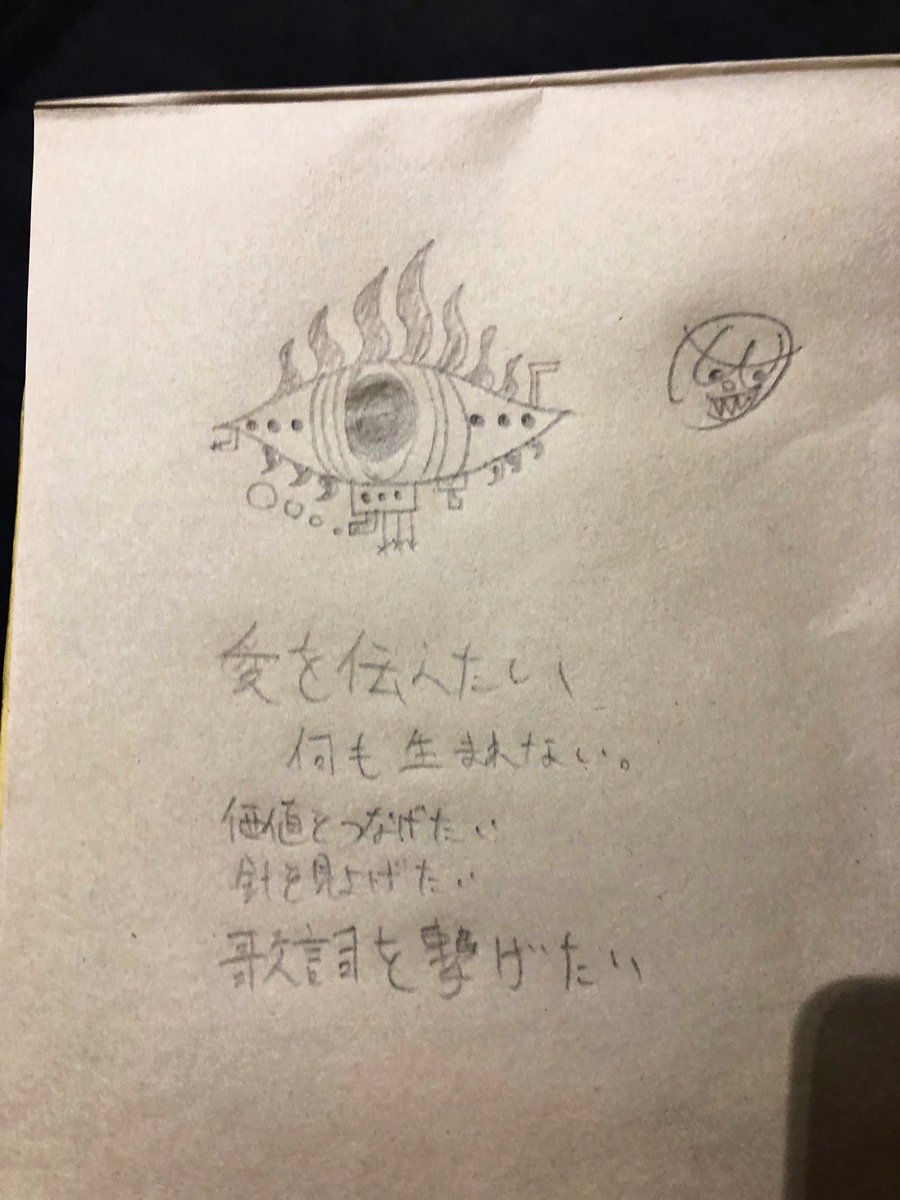 愛を伝えたい
何も生まれない。
価値をつなげたい
針を見上げたい
歌詞を繋げたい